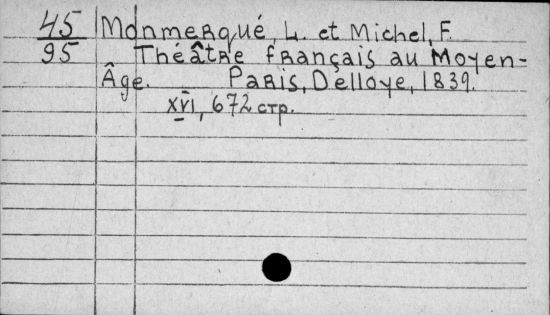 45 Monmerqué, L. et Michel, F.
95 Théâtre français au Moyen-
Âge. Paris, Delloye, 1839.
XVI, 672 стр.